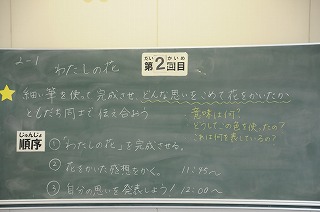 2-1
わたしの花
だい かいめ
第2回目
細い筆を使って完成させ、どんな思いをこめて花をかいたか
ともだち同士で伝え合おう
意味は何?
どうしてこの色を使ったの?
これは何を表しているの?
じゅんじょ
順序
①「わたしの花」を完成させる。
②花をかいた感想をかく。 11:45〜
③自分の思いを発表しよう! 12:00〜